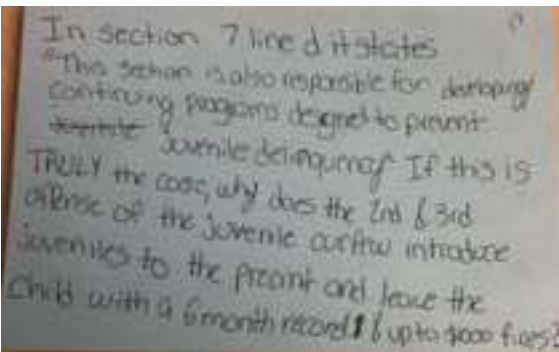 In section 7 line d it states
"This section is also responsible for developing/
continuing programs designed to prevent
juvenile delinquency" If this is
TRULY the case, why does the 2nd & 3rd
offense of the juvenile curfew introduce
juveniles to the precint and leave the
child with a 6 month record & up to fines?